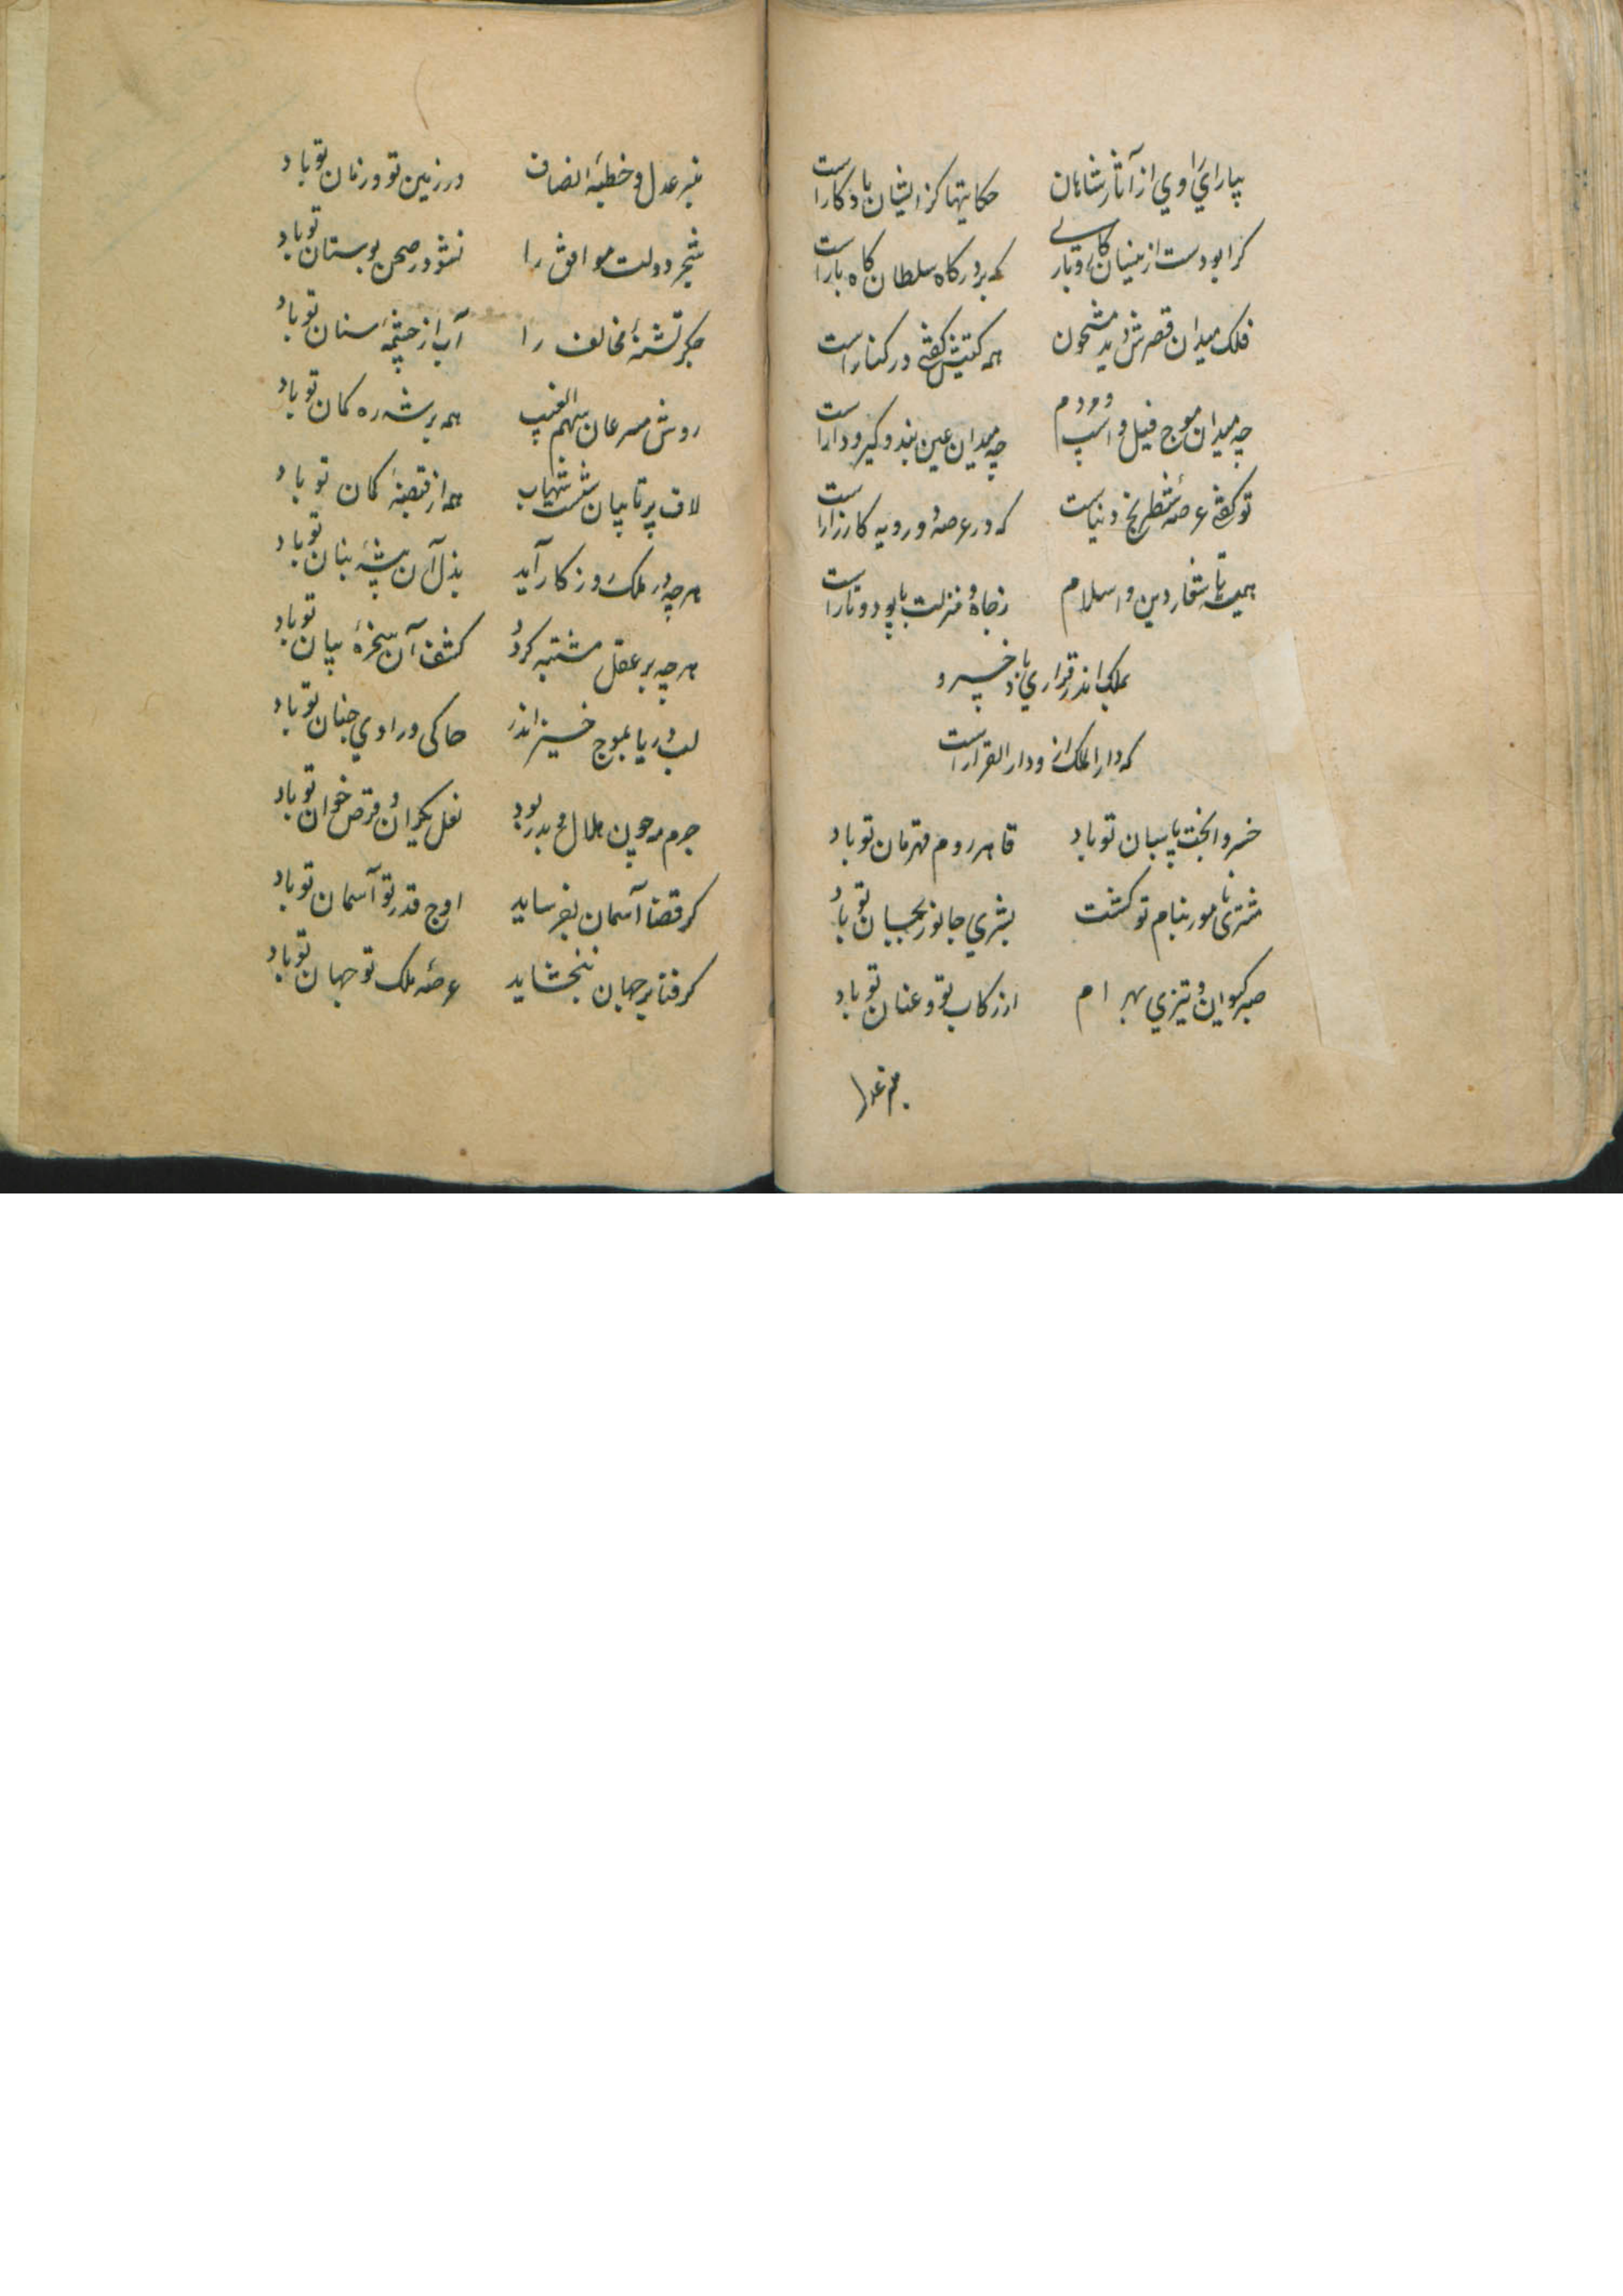 بیارای راوی از آثار شاهان حکایتها کز ایشان یادکارست
کرا بودست ازینسان کار و باری که بر درکاه سلطان کاه بارست
فلک میدان قصرش دید مشحون همه کتیش کفتی در کنارست
چه میدان موج فیل و اسپ و مردم چه میدان عین بند و کیر و دارست
تو کفتی عرصه شطرنج دنیاست که در عرصه دو رویه کارزارست
همیشه تا شعار دین و اسلام ز جاه و منزلت با پود و تارست
بملک اندر قراری باد خسرو
که دار الملک از و دار القرارست
خسروا بخت پاسبان تو باد قاهر روم قهرمان تو باد
مشتری تا مور بنام تو کشت بشری جانور بجسان تو باد
صبر کیوان و تیزی بهرام از رکاب تو و عنان تو باد
منبر عدل
منبر عدل و خطبه انصاف در زمین تو و زمان تو باد
شجر دولت موافق را نشو در صحن بوستان تو باد
جکر تشنهٔ مخالف را آب از چشمه سنان تو باد
روش مسرعان سهم الغیب همه بر شه ره کمان تو باد
لاف پرتابیان شست شهاب همه از قبضهٔ کمان تو باد
هرچه در ملک روزکار آید بذل آن پیشه بنان تو باد
هرچه بر عقل مشتبه کردد کشف آن سخرهٔ بیان تو باد
لب دریا بموج خیز اندر حاکی و راوی جنان تو باد
جرم مه چون هلال و بدر بود نعل یکران و قرص خوان تو باد
کر قضا آسمان بفرساید اوج قدر تو آسمان تو باد
کر فنا بر جهان نبخشاید عرصه ملک تو جهان تو باد